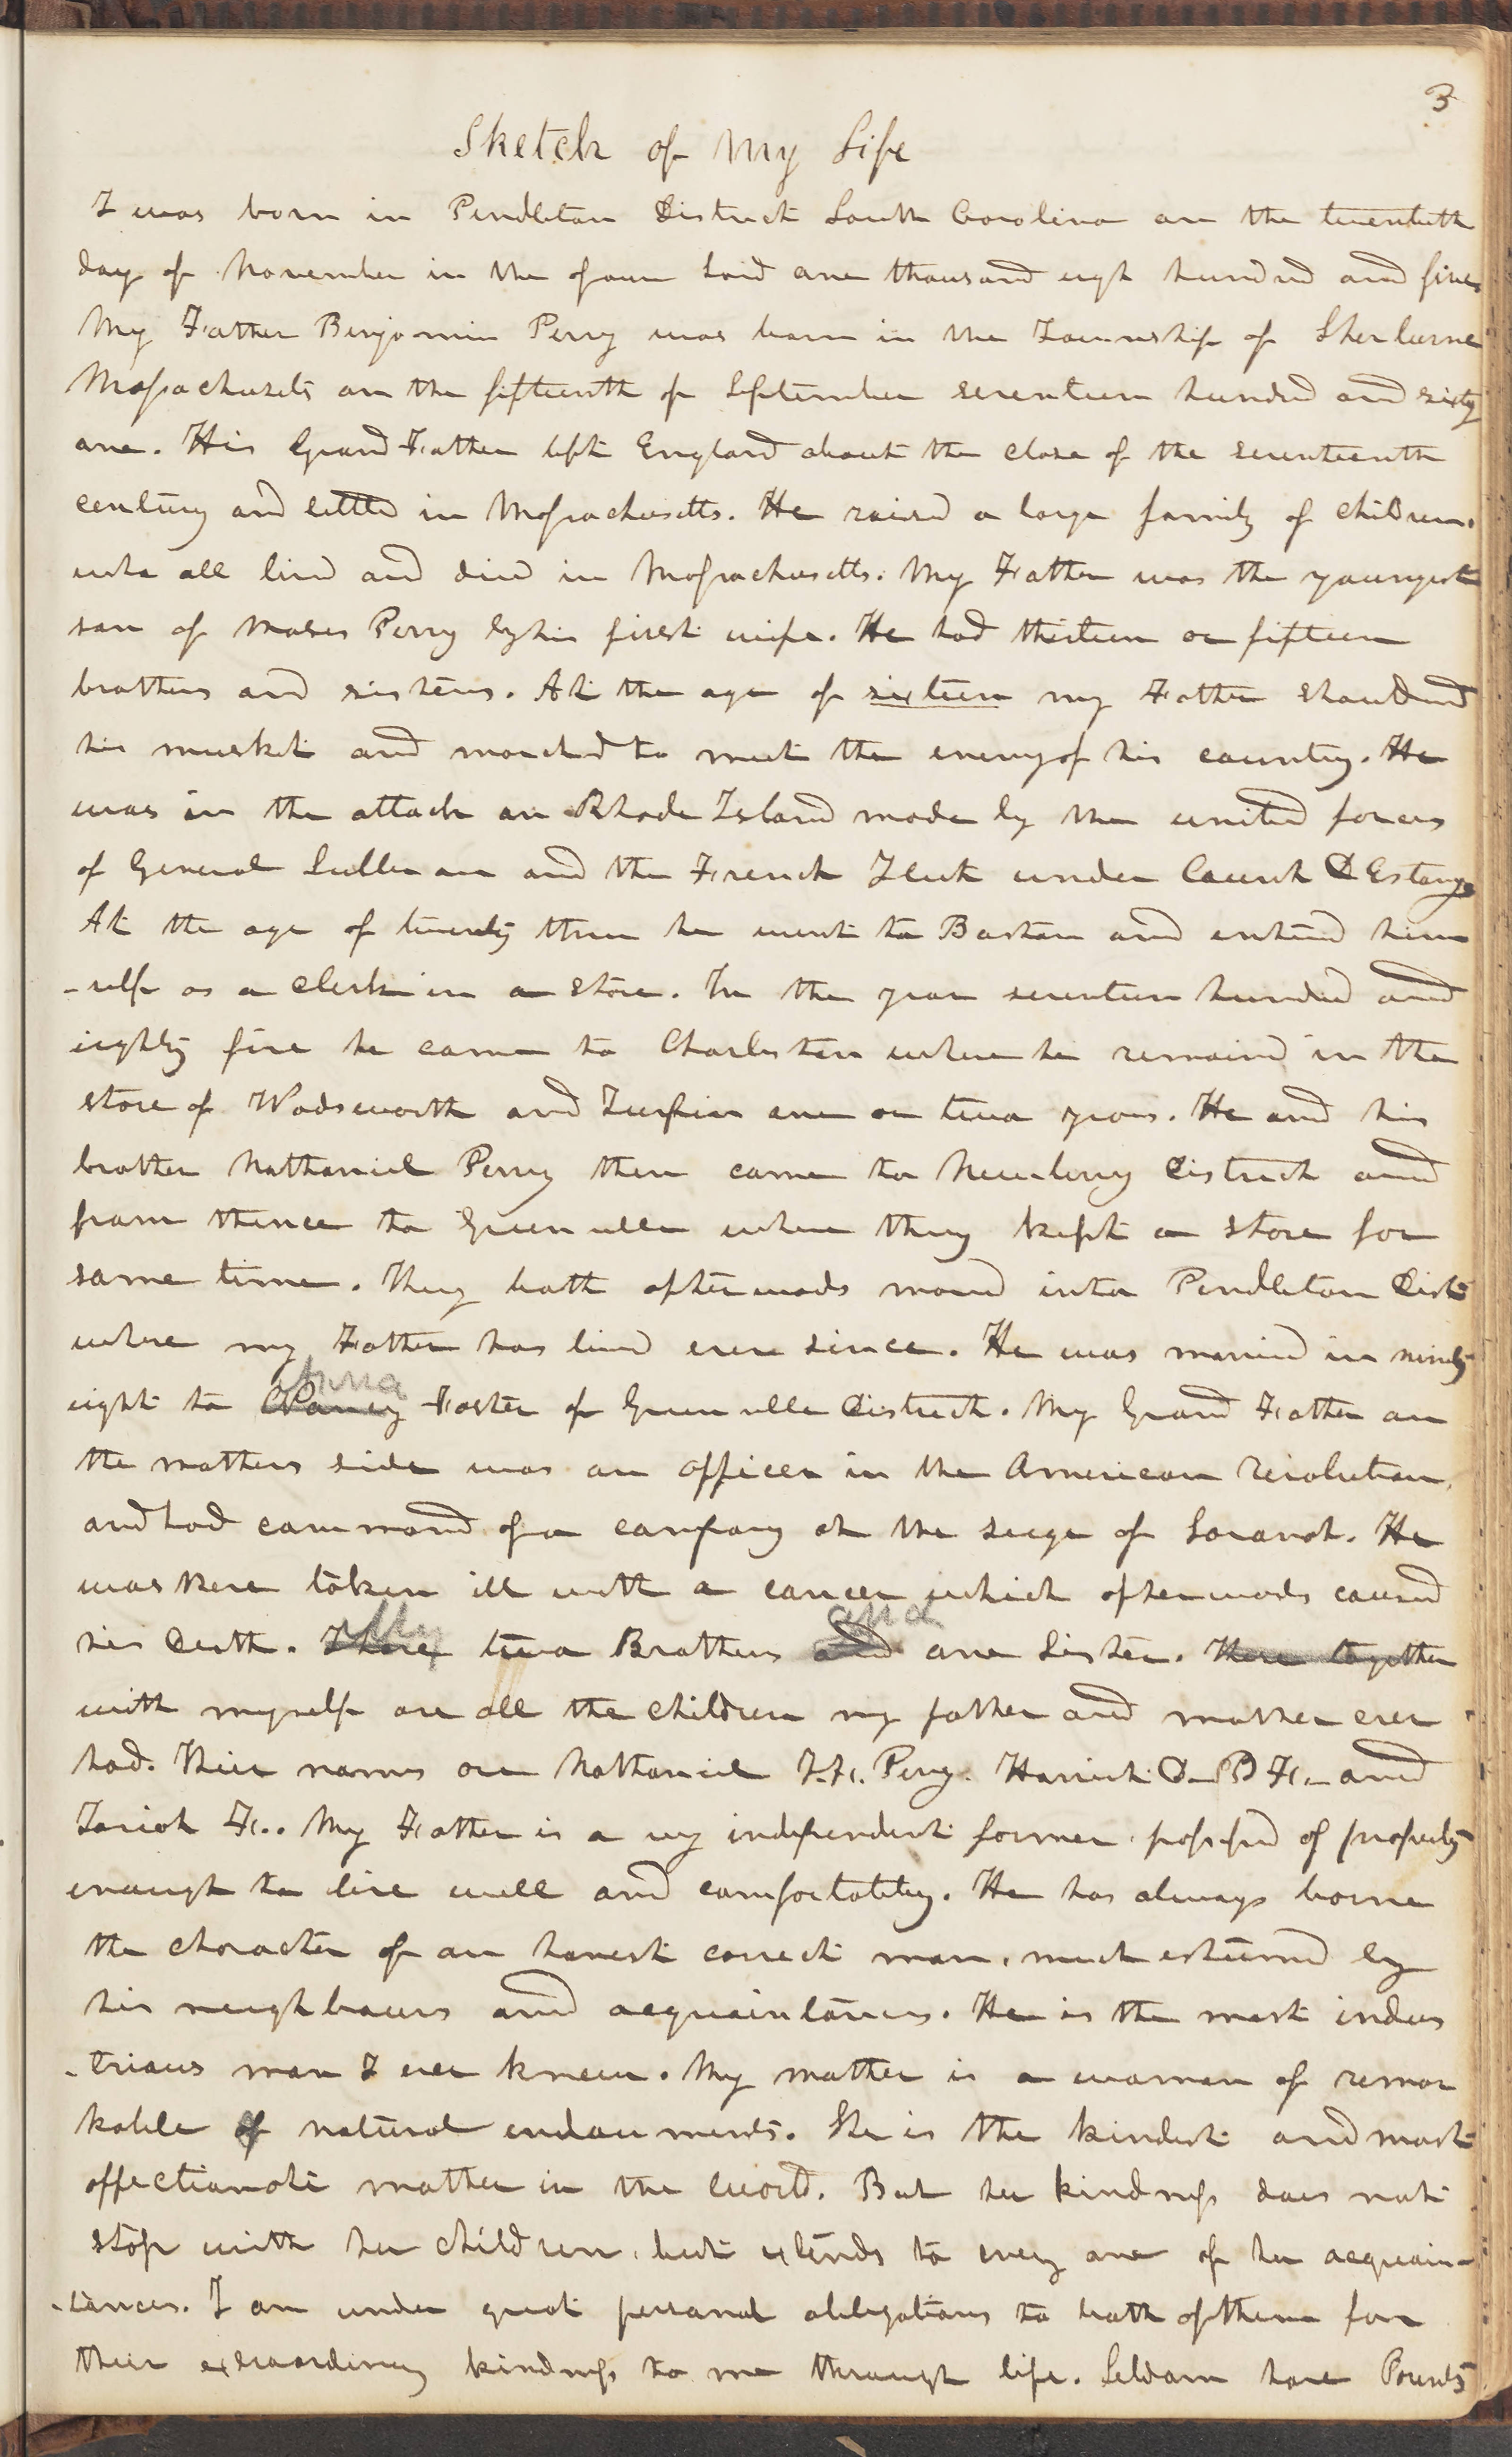 3
Sketch of My Life
I was born in Pendleton District South Carolina on the twentieth
day of November in the of our Lord one thousand eight hundred and five.
My Father Benjamin Perry was born in the Township of Sherburne
Massachusets on the fifteenth of September seventeen hundred and sixty
one. His Grand Father left England about the close of the seventeenth
century and settled in Massachusetts. He raised a large family of children.
who all lived and died in Massachusetts. My Father was the youngest
son of Moses Perry by his first wife. He had thirteen or fifteen
brothers and sisters. At the age of sixteen my Father shouldered
his musket and marched to meet the enemy of his country. He
was in the attack on Rhode Island made by the united forces
of General Sullivan and the French Fleet under Count D Estange
At the age of twenty three he went to Boston and entered him
-self as a Clerk in a store. In the year seventeen hundred and
eighty five he came to Charleston where he remained in the
store of Wadsworth and Turpin one or two years. He and his
brother Nathaniel Perry then came to Newberry District and
from thence to Greenville where they kept a store for
some time. They both afterwards moved into Pendleton Dist
where my Father has lived ever since. He was married in ninety
Anna
eight to Nancy Foster of Greenville District. My Grand Father on
the mothers side was an officer in the American revolution,
and had command of a company at the siege of Savanah. He
was there taken ill with a cancer which afterwards caused
My and
his death. I have two Brothers and one Sister. These together
with myself are all the children my father and mother ever
had. Their names are Nathaniel Perry. Harriet D- B F.- and
Josiah F.. My Father is a very independent farmer, possessed of property
enough to live well and comfortably. He has always borne
the character of an honest correct man, much esteemed by
his neighbours and acquaintances. He is the most indus
-trious man I ever knew. My mother is a woman of remar
kable of natural endowments. She is the kindest and most
affectionate mother in the world. But her kindness does not
stop with her children, but extends to every one of her acquain-
-tances. I am under great personal obligations to both of them for
their extraordinary kindness to me through life. Seldom have Parents